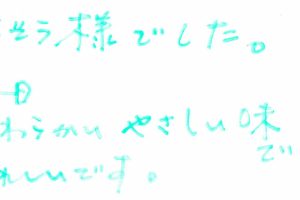 そう様でした。
わらかい やさしい味で
れしいです。